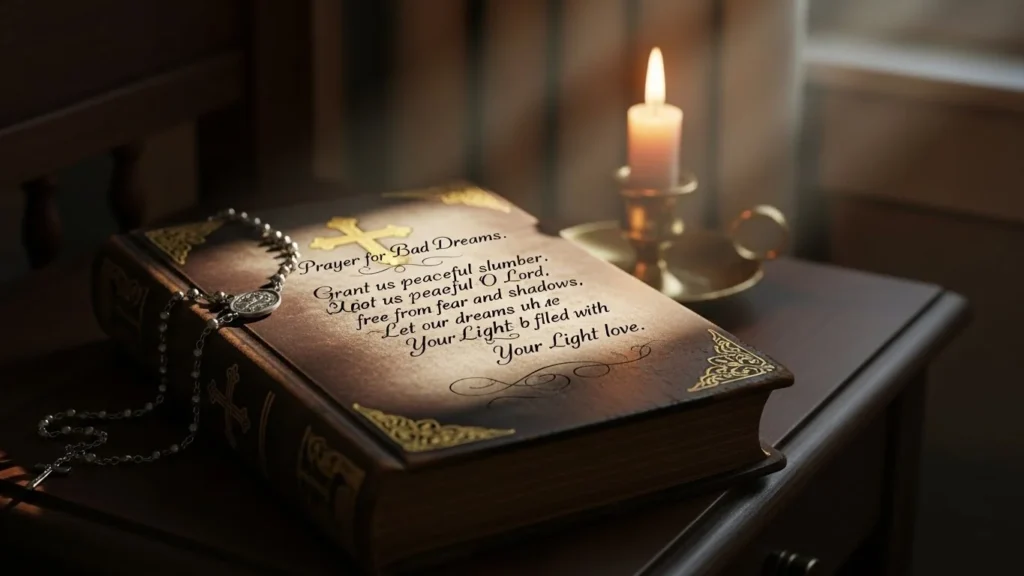 Prayer for Bad Dreams.
Grant us peaceful slumber.
us peaceful O Lord,
free from fear and shadows,
Let our dreams
Your Light b flled with
Your Light love.